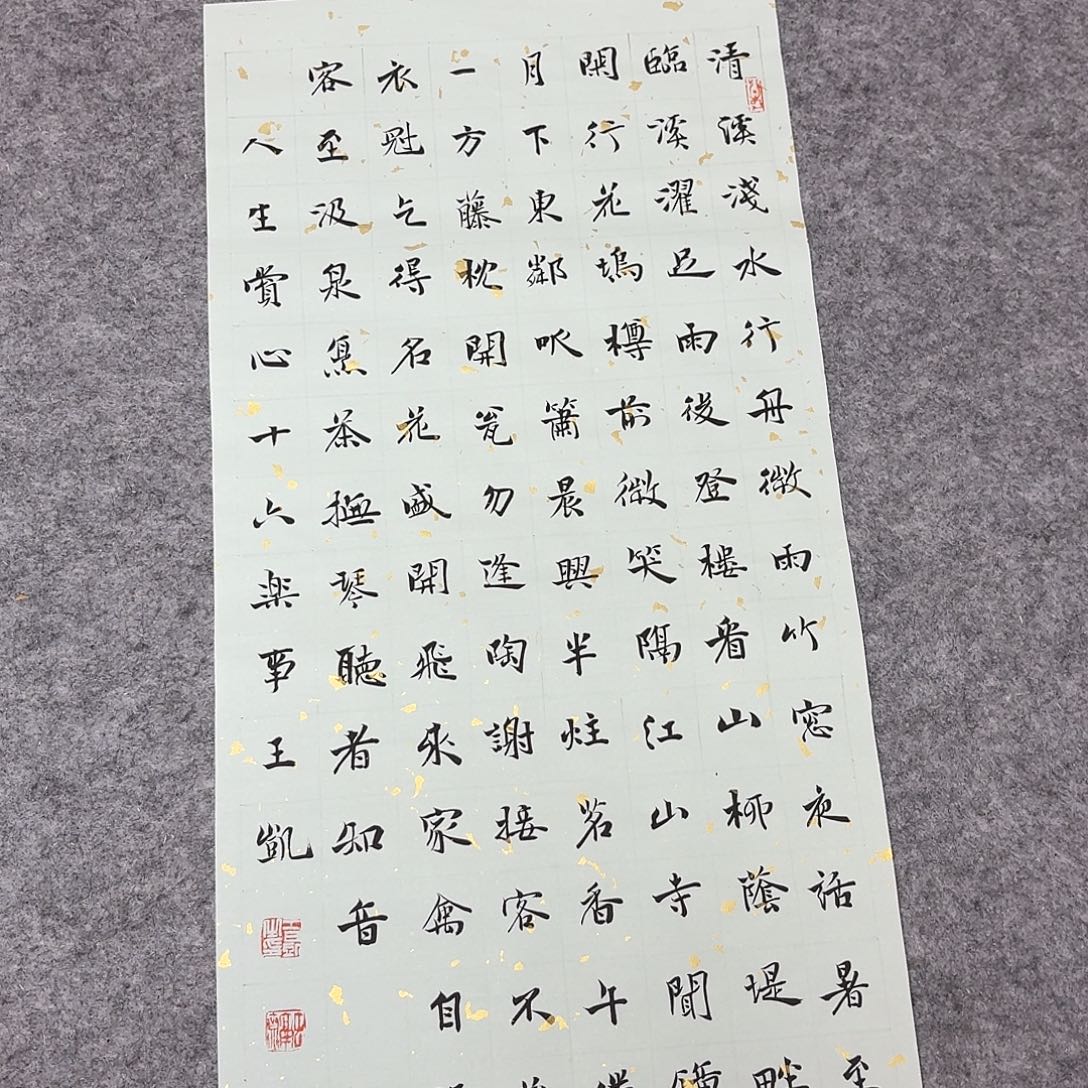 清溪淺水行舟微雨竹窓夜話暑至
臨溪濯足雨後登樓看山柳蔭堤畔
閑行花塢樽前微笑隔江山寺聞
月下東鄰吹簫晨興半炷茗香午
一方藤枕開瓮勿逢陶謝接客不
衣冠乞得名花盛開飛來家禽自
客至汲泉烹茶撫琴聽者知音
人生賞心十六楽事王凱